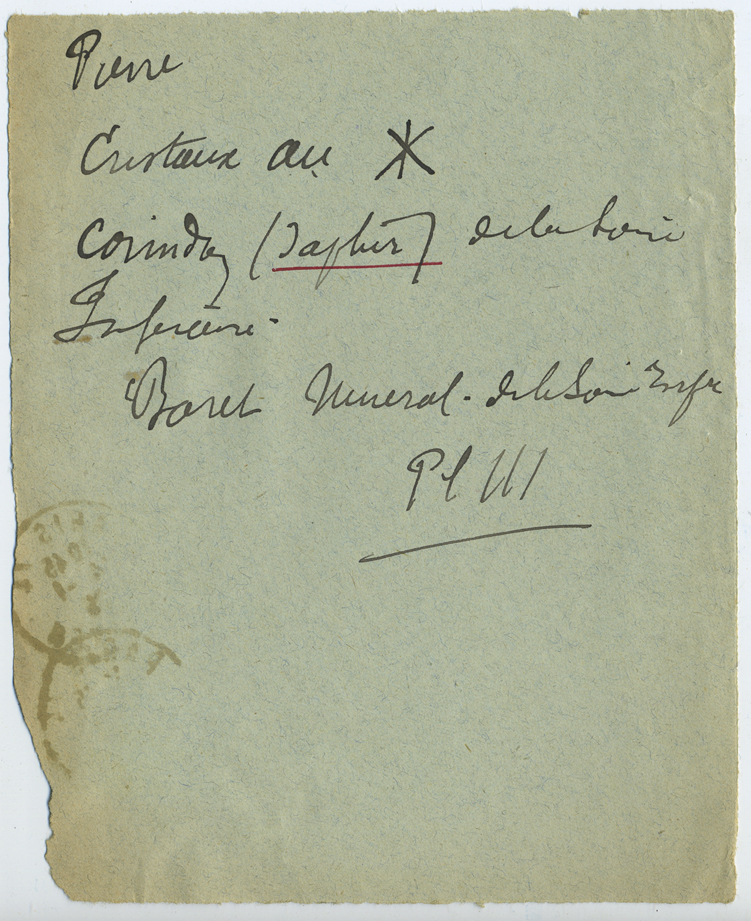 Pierre
Cristaux au
Corindon (Saphir) de la Loire
Inferieure.
Baret Mineral. de la Loire Infre
Pl III